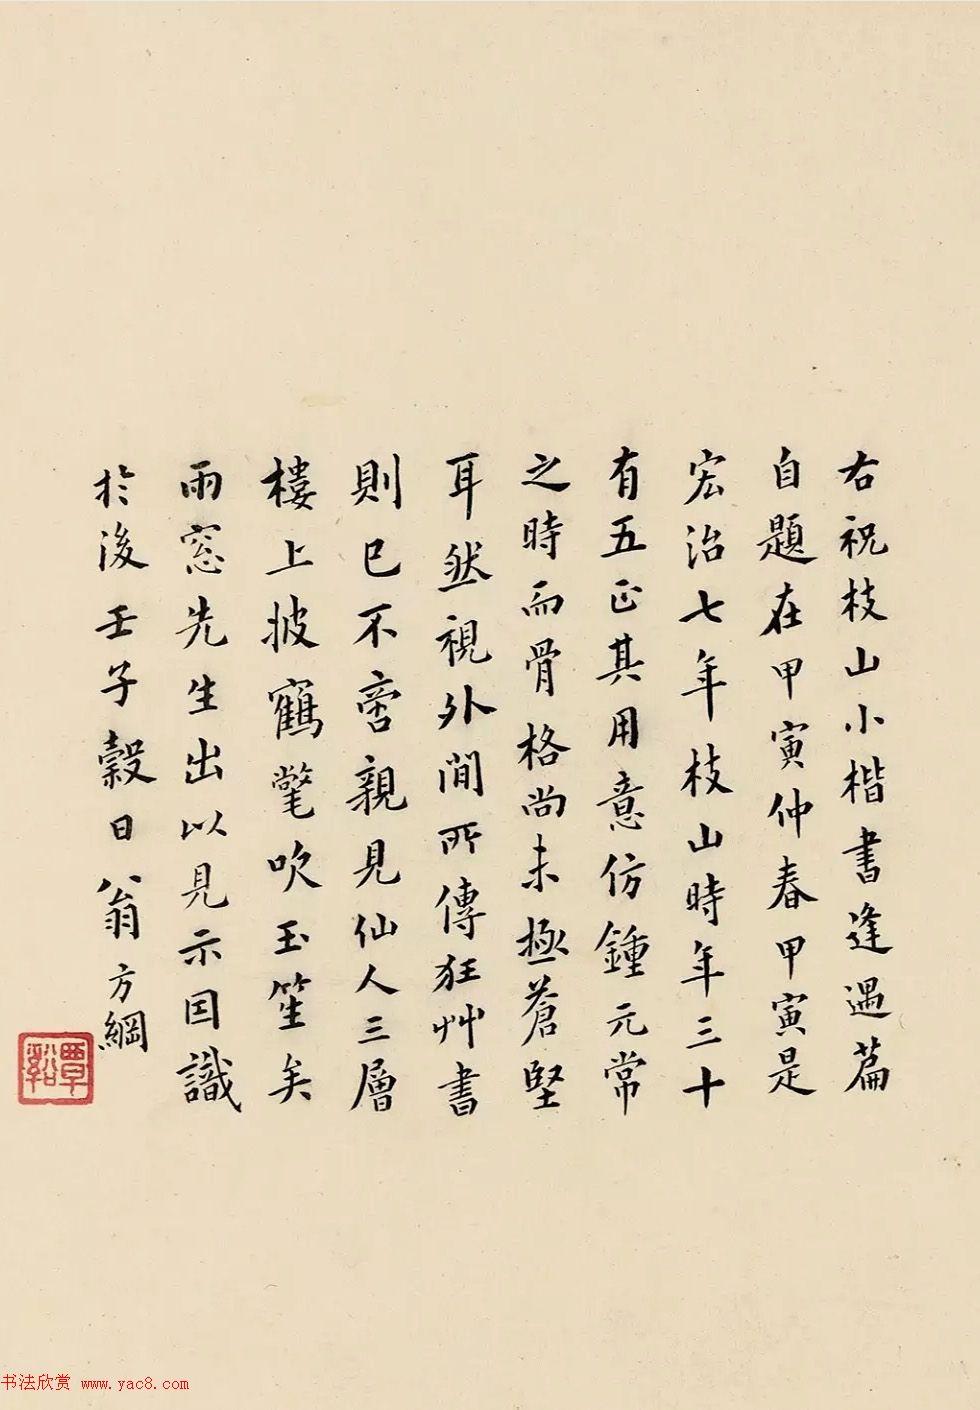 右祝枝山小楷書逢遇篇
自題在甲寅仲春甲寅是
宏治七年枝山時年三十
有五正其用意仿鍾元常
之時而骨格尚未極蒼堅
耳然視外間所傳狂艸書
則已不啻親見仙人三層
樓上披鶴氅吹玉笙矣
雨窓先生出以見示因識
於後壬子穀日翁方綱
覃谿
书法欣赏 www.yac8.com